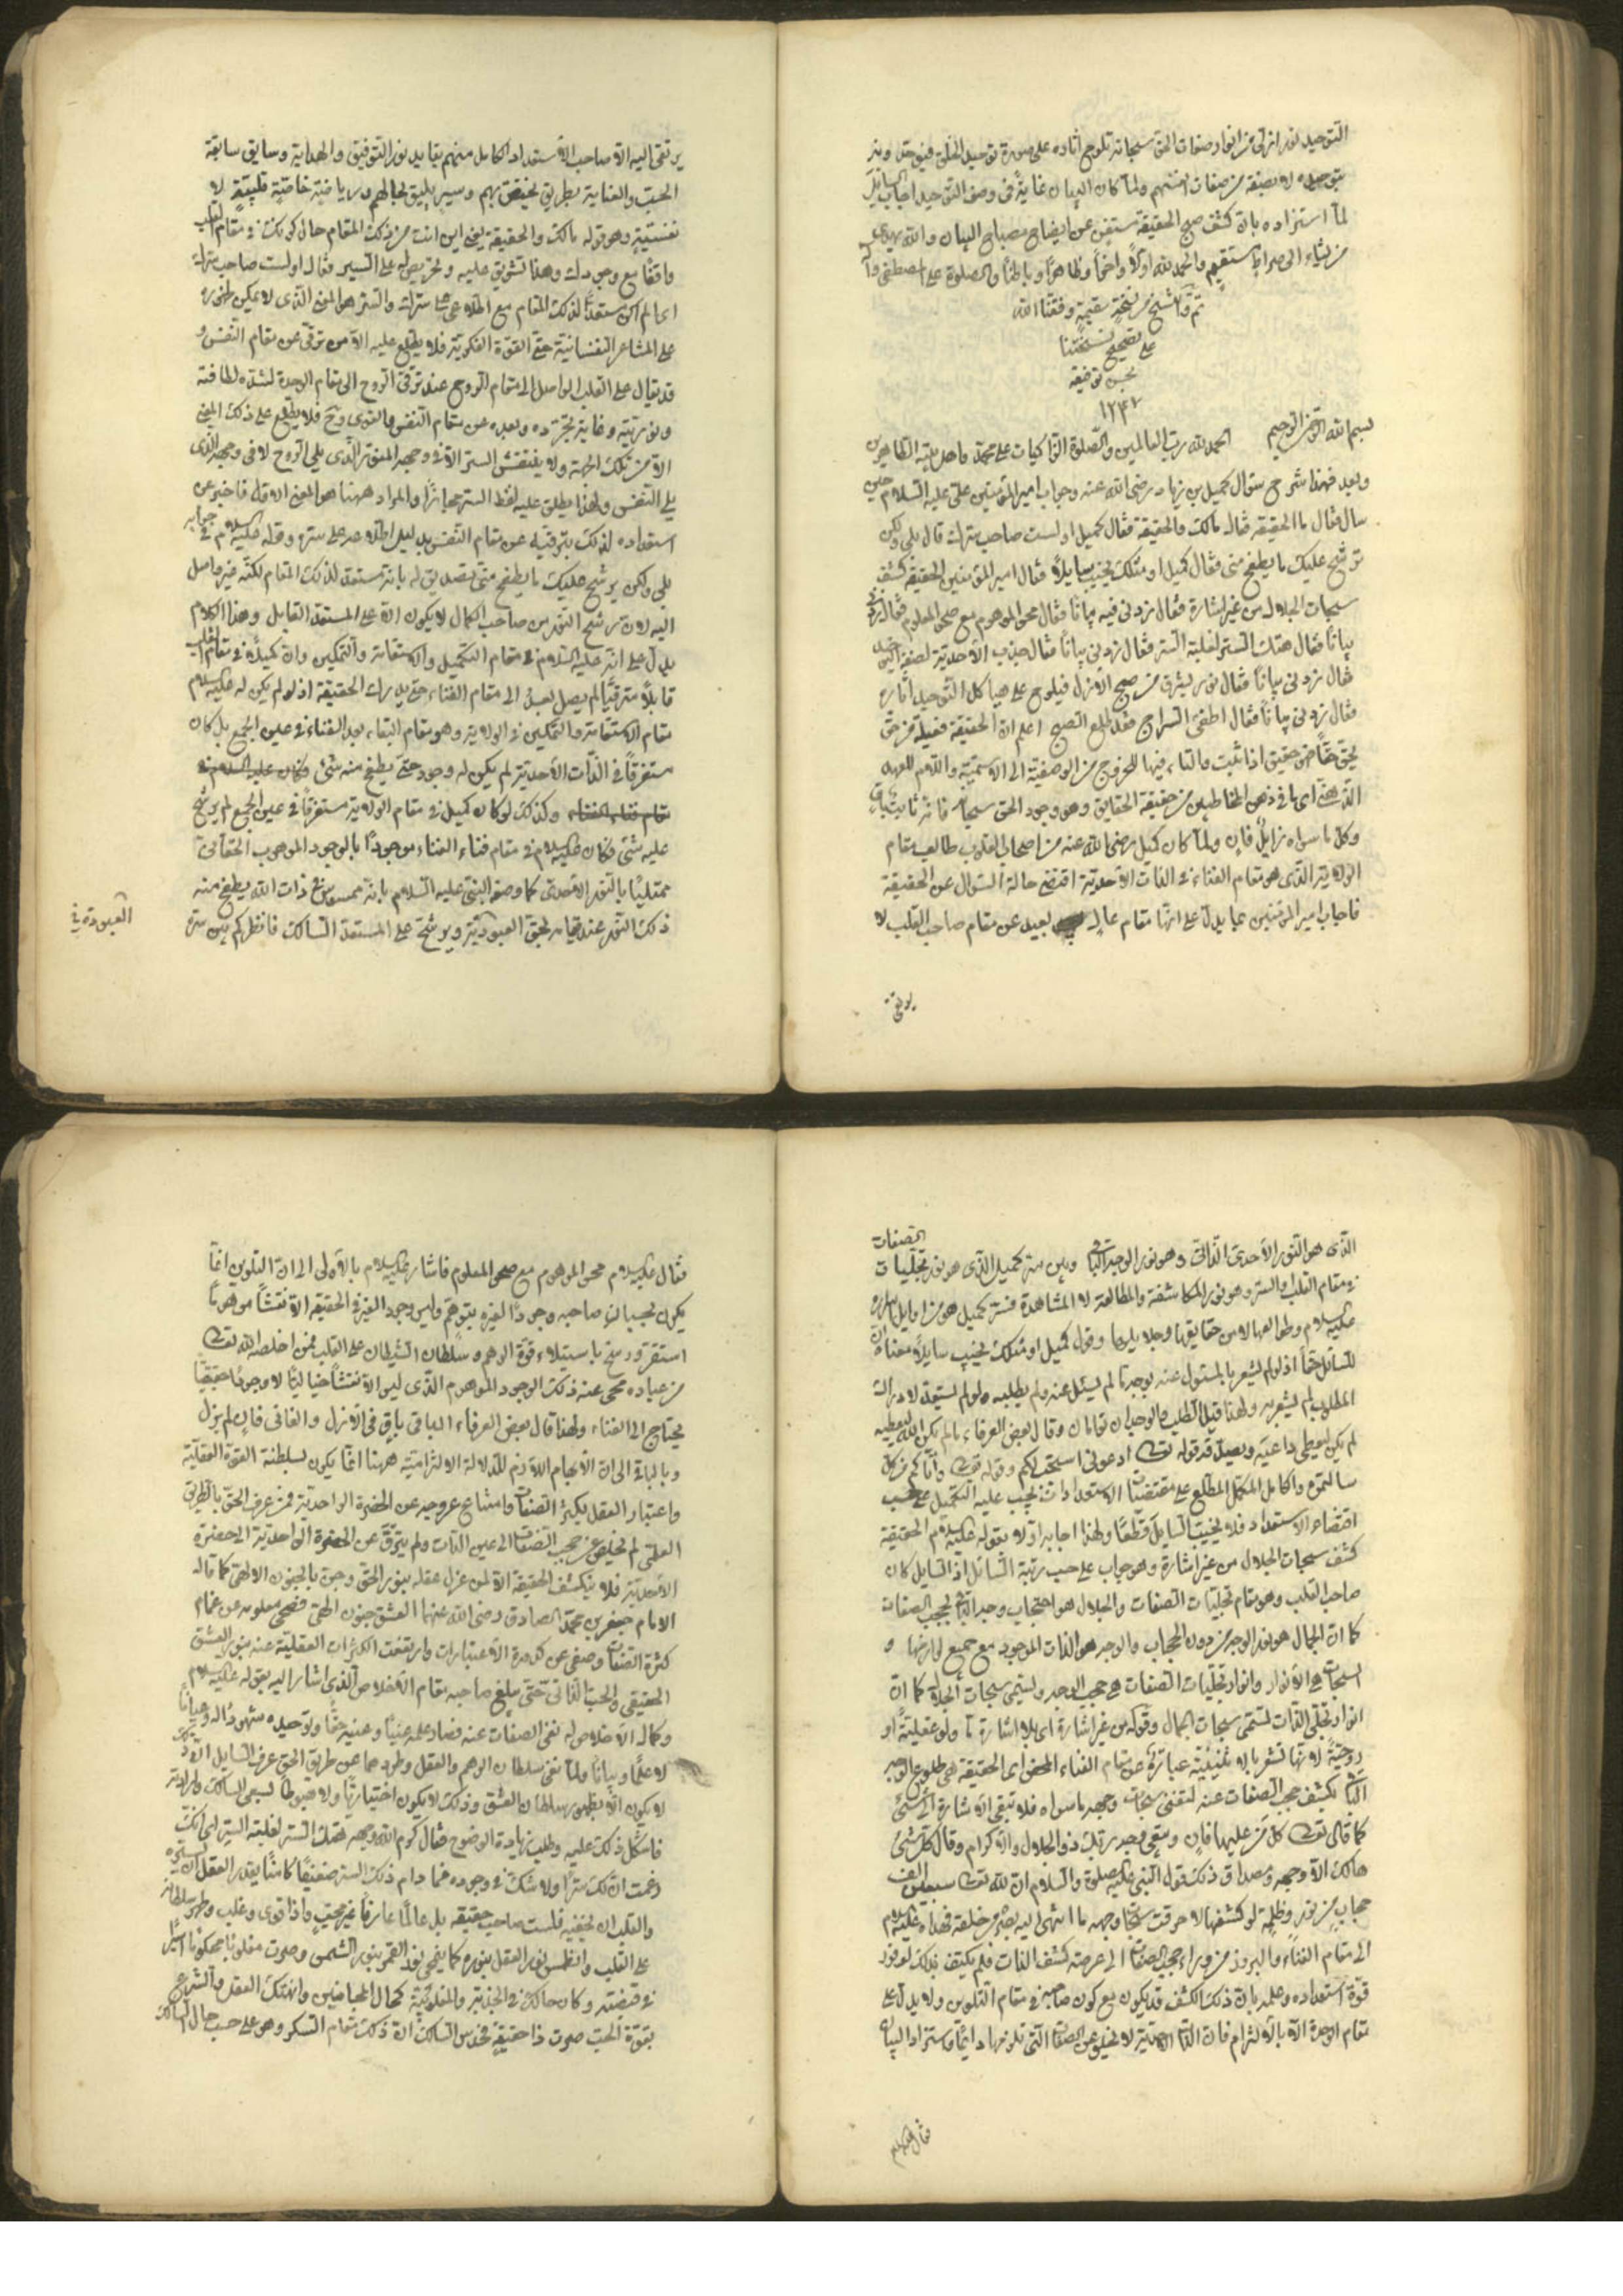 التوحيد نور انزلى من انوار صفات الحق سبحانه تلوح آثاره على صورة توحيد الخلق فيوحد
بتوحيده لا بصفة من صفات انفسهم ولما كان البيان غاية فى وصف التوحيد اجاب السايل
لما استزاده بان كشف صبح الحقيقة مستغن عن ايضاح مصباح البيان والله يهدى
من يشاء الى صراط مستقيم والحمد لله اولا واخرا وظاهرا وباطنا والصلوة على المصطفى وآله
تم الشرح من نسخة سقيمة وفقنا الله
على تصحيح نسختنا
بحسن توفيقه
١٢٤٢
بسم الله الرحمن الرحيم الحمد لله رب العالمين والصلوة الزاكيات على محمد واهل بيته الطاهرين
وبعد فهذا شرح سؤال كميل بن زياد رضى الله عنه وجواب امير المؤمنين على عليه السلام حين
سال فقال ما الحقيقة فقال مالك والحقيقة فقال كميل اولست صاحب سرك قال بلى ولكن
ترشح عليك ما يطفح منى فقال كميل او مثلك يخيب سايلا فقال امير المؤمنين الحقيقة كشف
سبحات الجلال من غير اشارة فقال زدنى فيه بيانا فقال محو الموهوم مع صحو المعلوم فقال زدنى
بيانا فقال هتك الستر لغلبة السر فقال زدنى بيانا فقال جذب الاحدية لصفة التوحيد
فقال زدنى بيانا فقال نور يشرق من صبح الازل فيلوح على هياكل التوحيد آثاره
فقال زدنى بيانا فقال اطفئ السراج فقد طلع الصبح اعلم ان الحقيقة فعيلة من حق
يحق حقا فهو حقيق اذا ثبت والتاء فيها للخروج من الوصفية الى الاسمية واللام للعهد
الذهنى اى ما فى ذهن المخاطبين من حقيقة الحقايق وهو وجود الحق سبحانه فانه ثابت باق
وكل ما سواه زايل فان ولما كان كميل رضى الله عنه من اصحاب القلوب طالب مقام
الولاية الذى هو مقام الفناء فى الذات الاحدية اقتضى حاله السؤال عن الحقيقة
فاجاب امير المؤمنين بما يدل على انها مقام عال بعيد عن مقام صاحب القلب لا
يرتقى
يرتقى اليه الا صاحب الاستعداد الكامل منهم بتاييد نور التوفيق والهداية وسايق سابقة
الحب والعناية بطريق يختص بهم وسير يليق بحالهم ورياضة خاصة قلبية لا
نفسية وهو قوله مالك والحقيقة يعنى اين انت من ذلك المقام حال كونك فى مقام القلب
واقفا مع وجودك وهذا تشويق عليه وتحريض له على السير فقال اولست صاحب سرك
اى الم اكن مستعدا لذلك المقام مع اطلاعى على سرك والسر هو المعنى الذى لا يمكن ظهوره
على المشاعر النفسانية حتى القوة الفكرية فلا يطلع عليه الا من ترقى عن مقام النفس و
قد يقال على القلب الواصل الى مقام الروح عند ترقى الروح الى مقام الوحدة لشدة لطافته
ونوريته وغاية تجرده وبعده عن مقام النفس والقوى وح فلا يطلع على ذلك المعنى
الا من تلك الجهة ولا ينتقش السر الا فى وجهه المنور الذى يلى الروح لا فى وجهه الذى
يلى النفس ولهذا يطلق عليه لفظ السر مجازا والمراد ههنا هو المعنى الاول فاخبر عن
استعداده لذلك بترقيه عن مقام النفس بدليل اطلاعه على سره وقوله عليه السلام فى جوابه
بلى ولكن يرشح عليك ما يطفح منى تصديق له بانه مستعد لذلك المقام لكنه غير واصل
اليه لان ترشح النور من صاحب الكمال لا يكون الا على المستعد القابل وهذا الكلام
يدل على انه عليه السلام فى مقام التكميل والاستقامة والتمكين وان كميلا فى مقام القلب
قابلا مترقيا لم يصل بعد الى مقام الفناء حتى يدرك الحقيقة اذ لو لم يكن له عليه السلام
مقام الاستقامة والتمكين فى الولاية وهو مقام البقاء بعد الفناء فى عين الجمع بل كان
مستغرقا فى الذات الاحدية لم يكن له وجود حتى يطفح منه شئ وكان عليه السلام فى
مقام فناء الفناء وكذلك لو كان كميل فى مقام الولاية مستغرقا فى عين الجمع لم يرشح
عليه شئ فكان عليه السلام فى مقام فناء الفناء موجودا بالوجود الموهوب الحقانى
ممتليا بالنور الاحدى كما وصفه النبى عليه السلام بانه ممسوس فى ذات الله يطفح منه
ذلك النور عند قيامه بحق العبودية ويرشح على المستعد السالك فانظر كم بين سره
العبودة فى
الذى هو النور الاحدى الذاتى وهو نور الوجه الباقى وبين سر كميل الذى هو نور تجليات الصفات
فى مقام القلب والسر وهو نور المكاشفة والمطالعة لا المشاهدة فسر كميل هو من اوايل اسراره
عليه السلام وطوالعها لا من حقايقها وجلايلها وقول كميل او مثلك يخيب سايلا معناه ان
للسائل حقا اذ لو لم يشعر بالمسئول عنه بوجه ما لم يسئل عنه ولم يطلبه ولو لم يستعد لادراك
المطلوب لم يشعر به ولهذا قيل الطلب والوجدان توامان وقال بعض العرفاء ما لم يكن الله ليعطيه
لم يكن ليعطى داعيه ويصدقه قوله تعالى ادعونى استجب لكم وقوله تعالى وآتاكم من كل
ما سالتموه والكامل المكمل المطلع على مقتضيات الاستعدادات يجب عليه التكميل على حسب
اقتضاء الاستعداد فلا يخيب السايل قطعا ولهذا اجابه اولا بقوله عليه السلام الحقيقة
كشف سبحات الجلال من غير اشارة وهو جواب على حسب رتبة السائل اذ السايل كان
صاحب القلب وهو مقام تجليات الصفات والجلال هو احتجاب وجه الذات بحجب الصفات
كما ان الجمال هو نور الوجه من دون الحجاب والوجه هو الذات الموجود مع جميع لوازمها و
السبحات هى الانوار وانوار تجليات الصفات هى حجب الوجه وتسمى سبحات الجلال كما ان
انوار تجلى الذات تسمى سبحات الجمال وقوله من غير اشارة اى بلا اشارة ما ولو عقلية او
روحية لانها تشعر بالاثنينية عبارة عن مقام الفناء المحض اى الحقيقة هى طلوع الوجه
الباقى بكشف حجب الصفات عنه لتفنى سبحات وجهه ما سواه فلا تبقى الاشارة الى شئ
كما قال تعالى كل من عليها فان ويبقى وجه ربك ذو الجلال والاكرام وقال كل شئ
هالك الا وجهه ومصداق ذلك قول النبى عليه الصلوة والسلام ان لله تعالى سبعين الف
حجاب من نور وظلمة لو كشفها لاحرقت سبحات وجهه ما انتهى اليه بصره من خلقه فهداه عليه السلام
الى مقام الفناء والبروز من وراء حجب الصفات الى عرصة كشف الذات فلم يكتف بذلك لوفور
قوة استعداده وعلمه بان ذلك الكشف قد يكون مع كون صاحبه فى مقام التلوين ولا يدل على
مقام الوحدة الا بالالتزام فان الذات الاحدية لا تخلو عن الصفات التى تلزمها دائما فاستزاد البيان
فقال عليه السلام
فقال عليه السلام محو الموهوم مع صحو المعلوم فاشار عليه السلام بالاولى الى ان التلوين انما
يكون بحسبان صاحبه وجودا لغيره بتوهم وليس وجود الغير فى الحقيقة الا نقشا موهوما
استقر ورسخ باستيلاء قوة الوهم وسلطان الشيطان على القلب فمن اخلصه الله تعالى
من عباده محى عنه ذلك الوجود الموهوم الذى ليس الا نقشا خياليا لا وجودا حقيقيا
يحتاج الى الفناء ولهذا قال بعض العرفاء الباقى باق فى الازل والفانى فان لم يزل
وبالثانية الى ان الابهام اللازم للدلالة الالتزامية ههنا انما يكون لسلطنة القوة العقلية
واعتبار العقل لكثرة الصفات وامتناع عروجه عن الحضرة الواحدية فمن عرف الحق بالطريق
العلمى لم يخلص عن حجب الصفات الى عين الذات ولم يترق عن الحضرة الواحدية الى حضرة
الاحدية فلا ينكشف الحقيقة الا لمن عزل عقله بنور الحق وجن بالجنون الالهى كما قاله
الامام جعفر بن محمد الصادق رضى الله عنهما العشق جنون الهى فصحى معلومه عن غمام
كثرة الصفات وصفى عن كدورة الاعتبارات وارتفعت الكثرات العقلية عنه بنور العشق
الحقيقى والحب الذاتى حتى يبلغ صاحبه مقام الاخلاص الذى اشار اليه بقوله عليه السلام
وكمال الاخلاص له نفى الصفات عنه فصار علمه عينا وعينه حقا وتوحيده شهودا له وعيانا
لا علما وبيانا ولما نفى سلطان الوهم والعقل وطردهما عن طريق الحق عرف السايل ان ذلك
لا يكون الا بظهور سلطان العشق وذلك لا يكون اختياريا ولا منوطا بسعى السالك وارادته
فاشكل ذلك عليه وطلب زيادة الوضوح فقال كرم الله وجهه هتك الستر لغلبة السر اى انك
زعمت ان لك سرا ولا شك فى وجوده فما دام ذلك السر ضعيفا كامنا يقدر العقل ان يستره
والقلب ان يخفيه فلست صاحب حقيقة بل عالما عارفا غير محب واذا قوى وغلب وظهر سلطانه
على القلب وانطمس نور العقل بنوره كما يمحى نور القمر بنور الشمس وصرت مغلوبا محكوما اسيرا
فى قبضته وكان حالك فى الجذبة والمغلوبية كحال المجانين وانهتك العقل والشرع
بقوة الحب صرت ذا حقيقة فحدس السالك ان ذلك مقام السكر وهو على حسب حال السالك